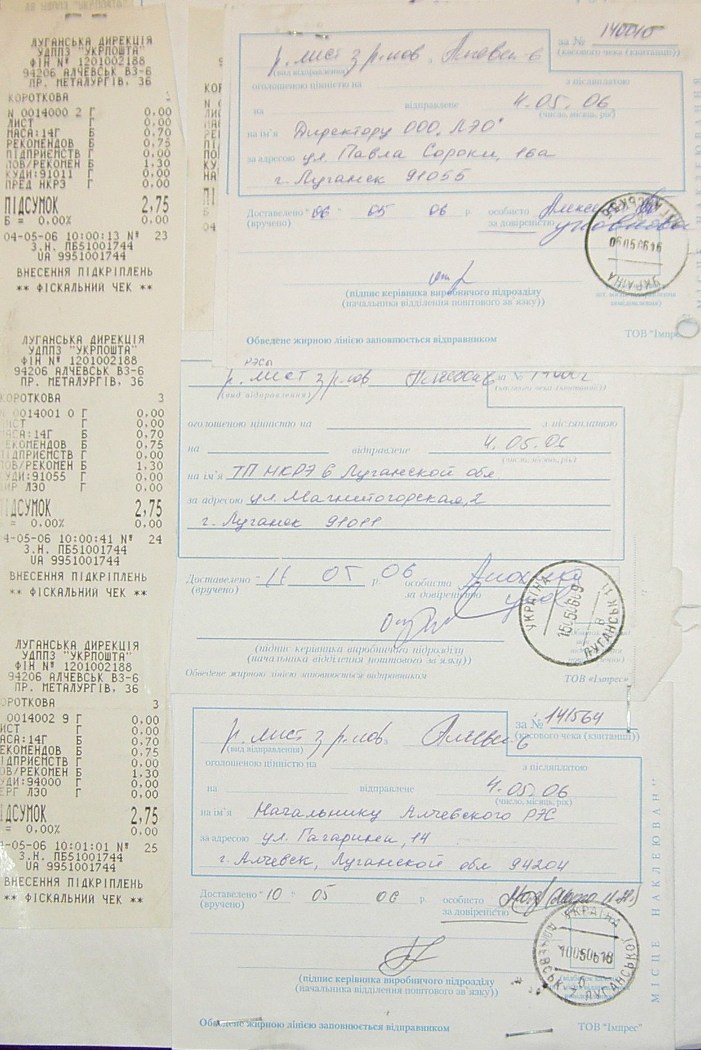 ЛУГАНСЬКА ДИРЕКЦІЯ
УДППЗ "УКРПОШТА"
ФІН № 1201002188
94206 АЛЧЕВСЬК ВЗ-6
ПР. МЕТАЛУРГІВ, 36
КОРОТКОВА 1
N 0014000 2 Г 0.00
ЛИСТ Г 0.00
МАСА:14Г Б 0.70
РЕКОМЕНДОВ Б 0.75
ПІДПРИЄМСТВ Г 0.00
ПОВ/РЕКОМЕН Б 1.30
КУДИ:91011 Г 0.00
ПРЕД НКРЗ Г 0.00
ПІДСУМОК 2,75
Б = 0.00% 0.00
04-05-06 10:00:13 № 23
З.Н. ПБ51001744
UA 9951001744
ВНЕСЕННЯ ПІДКРІПЛЕНЬ
** ФІСКАЛЬНИЙ ЧЕК **
ЛУГАНСЬКА ДИРЕКЦІЯ
УДППЗ "УКРПОШТА"
ФІН № 1201002188
94206 АЛЧЕВСЬК ВЗ-6
ПР. МЕТАЛУРГІВ, 36
КОРОТКОВА 3
0014001 0 Г 0.00
ЛИСТ Г 0.00
МАСА:14Г Б 0.70
РЕКОМЕНДОВ Б 0.75
ПІДПРИЄМСТВ Г 0.00
ПОВ/РЕКОМЕН Б 1.30
КУДИ:91055 Г 0.00
ИР ЛЗО Г 0.00
ПІДСУМОК 2,75
= 0.00% 0.00
4-05-06 10:00:41 № 24
З.Н. ПБ51001744
UA 9951001744
ВНЕСЕННЯ ПІДКРІПЛЕНЬ
** ФІСКАЛЬНИЙ ЧЕК **
ЛУГАНСЬКА ДИРЕКЦІЯ
УДППЗ "УКРПОШТА"
ФІН № 1201002188
94206 АЛЧЕВСЬК ВЗ-6
ПР. МЕТАЛУРГІВ, 36
КОРОТКОВА 3
0014002 9 Г 0.00
ЛИСТ Г 0.00
МАСА:14Г Б 0.70
РЕКОМЕНДОВ Б 0.75
ПІДПРИЄМСТВ Г 0.00
ПОВ/РЕКОМЕН Б 1.30
КУДИ:94000 Г 0.00
ЕРГ ЛЗО Г 0.00
ПІДСУМОК 2,75
= 0.00% 0.00
4-05-06 10:01:01 № 25
З.Н. ПБ51001744
UA 9951001744
ВНЕСЕННЯ ПІДКРІПЛЕНЬ
** ФІСКАЛЬНИЙ ЧЕК **
р. лист з р.пов. Алчевск-6 за № 140010
(вид відправлення) (касового чека (квитанції))
оголошеною цінністю на з післяплатою
на відправлене 4.05.06
(число, місяць, рік)
на ім'я Директору ООО "ЛЭО"
за адресою ул. Павла Сороки, 16а
г. Луганск 91055
Доставлено "06 05 06 р. особисто
(вручено) за довіреністю
(підпис керівника виробничого підрозділу
(начальника відділення поштового зв'язку))
Обведене жирною лінією заповнюється відправником ТОВ "Імпрес"
УКРАЇНА
р. лист з р.пов за № 14000
(вид відправлення)
оголошеною цінністю на з післяплатою
на відправлене 4.05.06
(число, місяць, рік)
на ім'я ТП НКРЭ в Луганской обл
за адресою ул. Магнитогорская, 2
г. Луганск 91011
Доставлено "11 05 06 р. особисто
(вручено) за довіреністю
(підпис керівника виробничого підрозділу
(начальника відділення поштового зв'язку))
Обведене жирною лінією заповнюється відправником ТОВ «Імпрес»
УКРАЇНА ЛУГАНСЬК 11
р. лист з р.пов. Алчевск 6 за № 141564
(вид відправлення) (касового чека (квитанції))
оголошеною цінністю на з післяплатою
на відправлене 4.05.06
(число, місяць, рік)
на ім'я Начальнику Алчевского РЭС
за адресою ул. Гагарина, 14
г. Алчевск, Луганской обл 94204
Доставлено "10 05 06 р. особисто
(вручено) за довіреністю
(підпис керівника виробничого підрозділу
(начальника відділення поштового зв'язку))
Обведене жирною лінією заповнюється відправником ТОВ "Імпрес"
УКРАЇНА ЛУГАНСЬКОЇ
МІСЦЕ НАКЛЕЮВАН